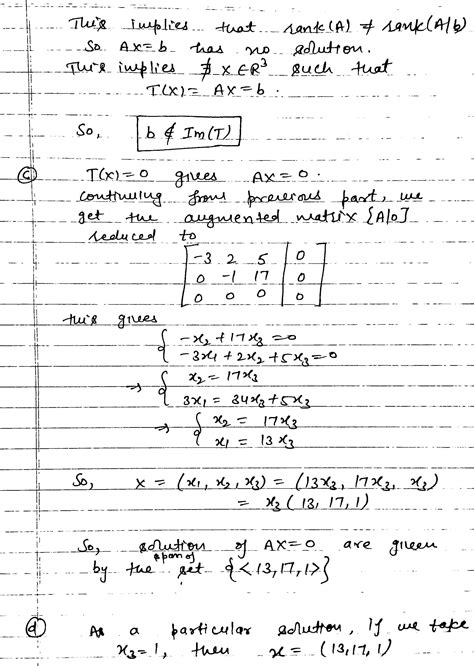 This implies that rank(A) ≠ rank(A|b)
So Ax=b has no solution.
This implies ∄ x ∈ R³ such that
T(x) = Ax = b.
So, b ∉ Im(T)
(c) T(x)=0 gives Ax=0.
continuing from previous part, we
get the augmented matrix [A|0]
reduced to
-3 2 5 | 0
0 -1 17 | 0
0 0 0 | 0
this gives
{ -x₂ + 17x₃ = 0
-3x₁ + 2x₂ + 5x₃ = 0
→ { x₂ = 17x₃
3x₁ = 34x₃ + 5x₃
→ { x₂ = 17x₃
x₁ = 13x₃
So, x = (x₁, x₂, x₃) = (13x₃, 17x₃, x₃)
= x₃ (13, 17, 1)
So, solution of AX=0 are given
by the span of set {<13,17,1>}
(d) As a particular solution, If we take
x₃=1, then x = (13,17,1)